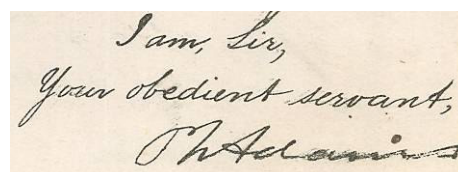 I am, Sir,
Your obedient servant,
Adams